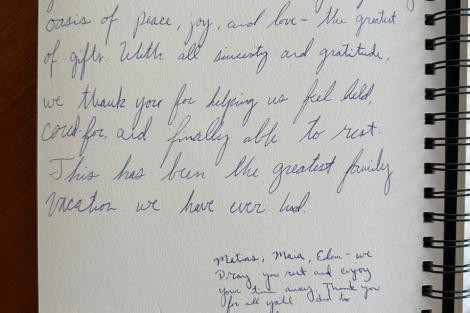 oasis of peace, joy, and love - the greatest
of gifts. With all sincerity and gratitude,
we thank you for helping us feel held,
cared for, and finally able to rest.
This has been the greatest family
vacation we have ever had.
Matias, Maia, Eden - we
pray you rest and enjoy
your time away. Thank you
for all y'all do to